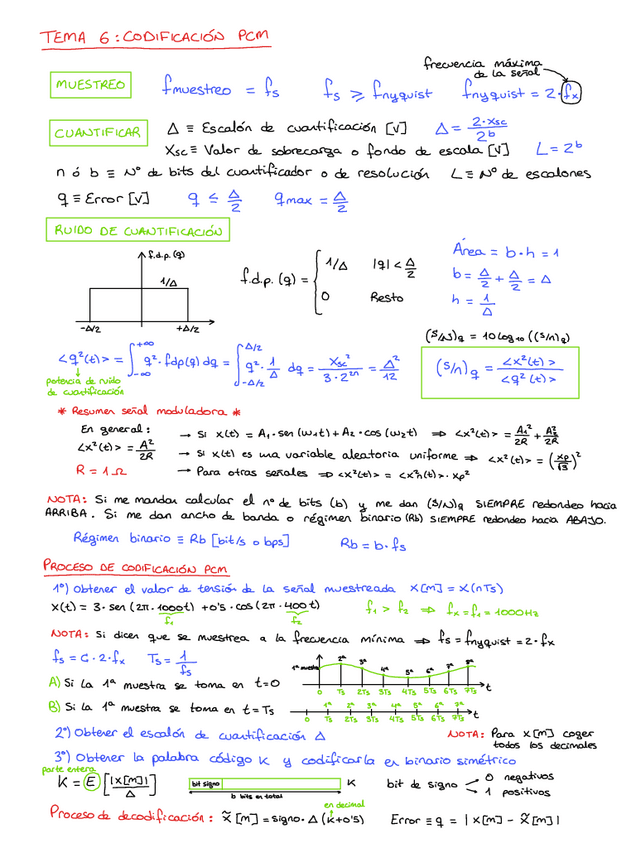 TEMA 6: CODIFICACIÓN PCM
frecuencia máxima
de la señal
MUESTREO fmuestreo = fs fs ≥ fnyquist fnyquist = 2·fx
CUANTIFICAR Δ ≡ Escalón de cuantificación [V] Δ = 2·Xsc / 2^b
Xsc ≡ Valor de sobrecarga o fondo de escala [V] L = 2^b
n ó b ≡ Nº de bits del cuantificador o de resolución L ≡ Nº de escalones
q ≡ Error [V] q ≤ Δ/2 qmax = Δ/2
RUIDO DE CUANTIFICACIÓN
f.d.p. (q)
1/Δ
-Δ/2 +Δ/2
f.d.p. (q) = { 1/Δ |q| < Δ/2
0 Resto
Área = b·h = 1
b = Δ/2 + Δ/2 = Δ
h = 1/Δ
(S/N)q = 10 log10 ((s/n)q)
<q²(t)> = ∫_{-∞}^{+∞} q²·fdp(q) dq = ∫_{-Δ/2}^{Δ/2} q²· 1/Δ dq = Xsc² / 3·2^{2n} = Δ²/12
potencia de ruido
de cuantificación
(s/n)q = <x²(t)> / <q²(t)>
* Resumen señal moduladora *
En general:
<x²(t)> = A²/2R
R = 1 Ω
→ Si x(t) = A1·sen(ω1t) + A2·cos(ω2t) ⇒ <x²(t)> = A1²/2R + A2²/2R
→ Si x(t) es una variable aleatoria uniforme ⇒ <x²(t)> = (xp/√3)²
→ Para otras señales ⇒ <x²(t)> = <x²n(t)>·xp²
NOTA: Si me mandan calcular el nº de bits (b) y me dan (S/N)q SIEMPRE redondeo hacia
ARRIBA. Si me dan ancho de banda o régimen binario (Rb) SIEMPRE redondeo hacia ABAJO.
Régimen binario ≡ Rb [bit/s o bps] Rb = b·fs
PROCESO DE CODIFICACIÓN PCM
1º) Obtener el valor de tensión de la señal muestreada x[m] = x(nTs)
x(t) = 3·sen(2π·1000t) + 0'5·cos(2π·400t) f1 > f2 ⇒ fx = f1 = 1000Hz
f1 f2
NOTA: Si dicen que se muestrea a la frecuencia mínima ⇒ fs = fnyquist = 2·fx
fs = C·2·fx Ts = 1/fs
1ª muestra 2ª 3ª 4ª 5ª 6ª 7ª 8ª
0 Ts 2Ts 3Ts 4Ts 5Ts 6Ts 7Ts t
A) Si la 1ª muestra se toma en t=0
B) Si la 1ª muestra se toma en t=Ts
1ª 2ª 3ª 4ª 5ª 6ª 7ª
0 Ts 2Ts 3Ts 4Ts 5Ts 6Ts 7Ts t
2º) Obtener el escalón de cuantificación Δ
NOTA: Para x[m] coger
todos los decimales
3º) Obtener la palabra código K y codificarla en binario simétrico
parte entera
K = E [ |x[m]| / Δ ]
bit signo K
b bits en total
bit de signo 0 negativos
1 positivos
en decimal
Proceso de decodificación: x̃[m] = signo·Δ(k+0'5) Error ≡ q = |x[m] - x̃[m]|